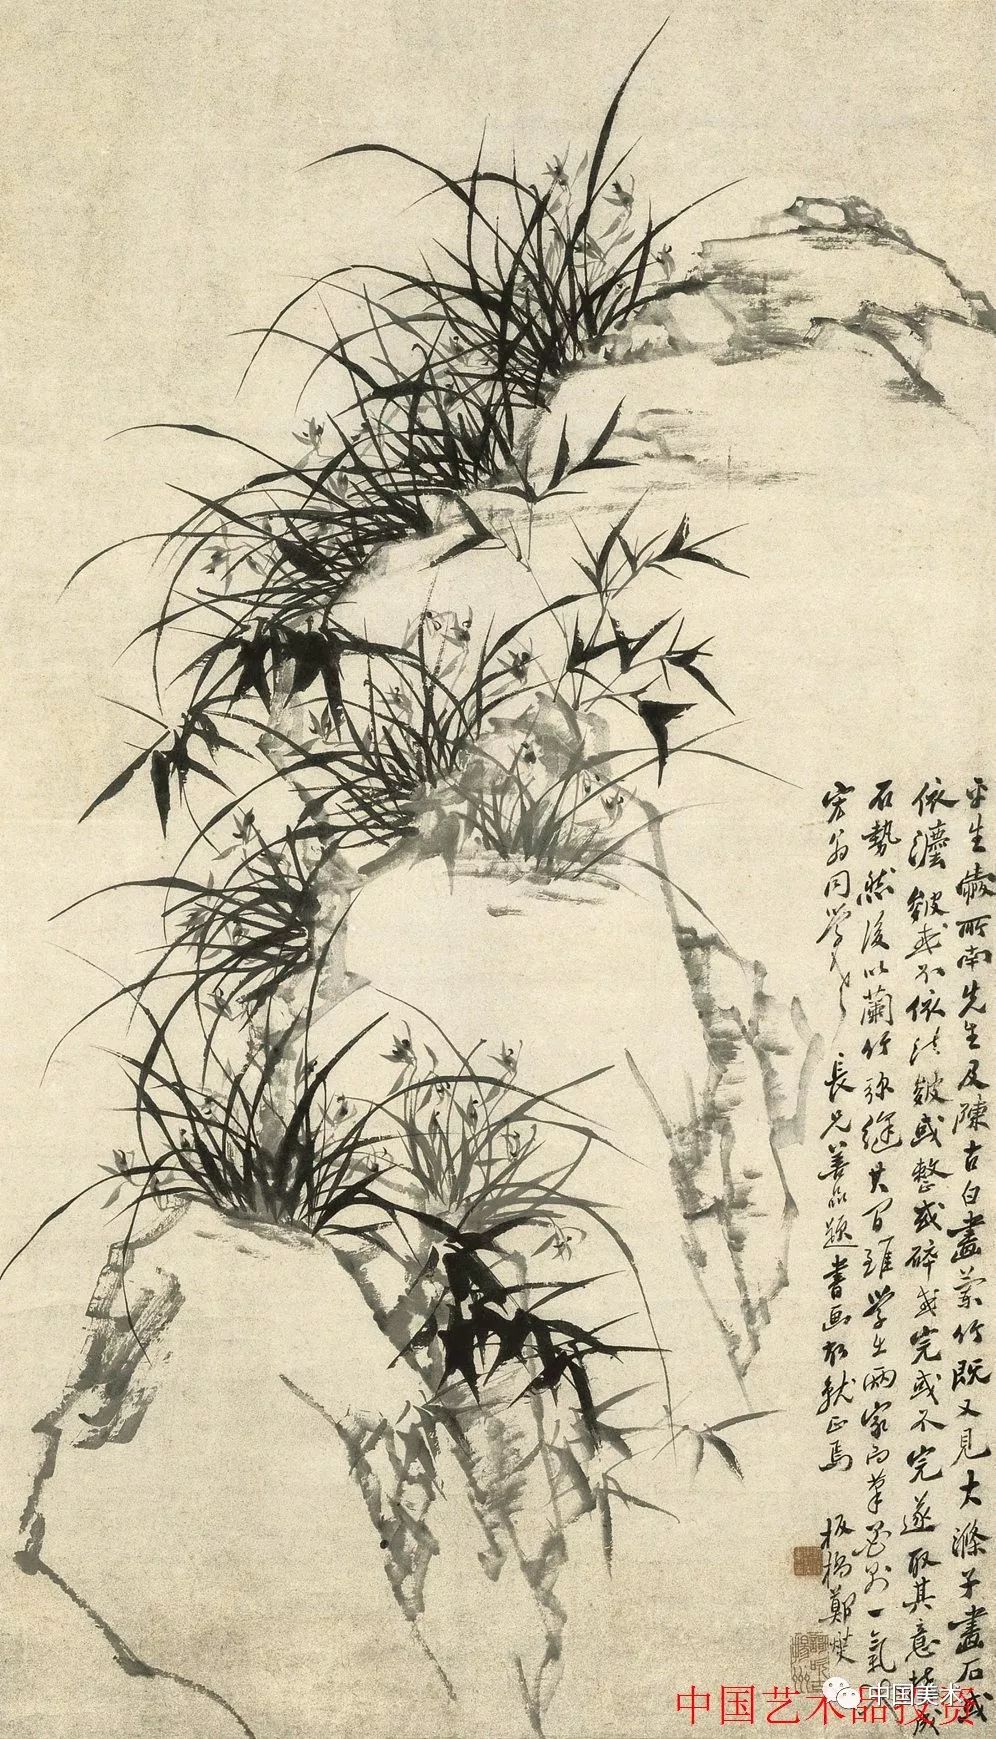 平生愛所南先生及陳古白畫蘭竹既又見大滌子畫石或
依法皴或不依法皴或整或碎或完或不完遂取其意構成
石勢然後以蘭竹彌縫其間雖學出兩家而筆墨則一氣
宏翁同學老長兄善品題書画故就正焉
板橋鄭燮
中国艺术品投资
中国美术